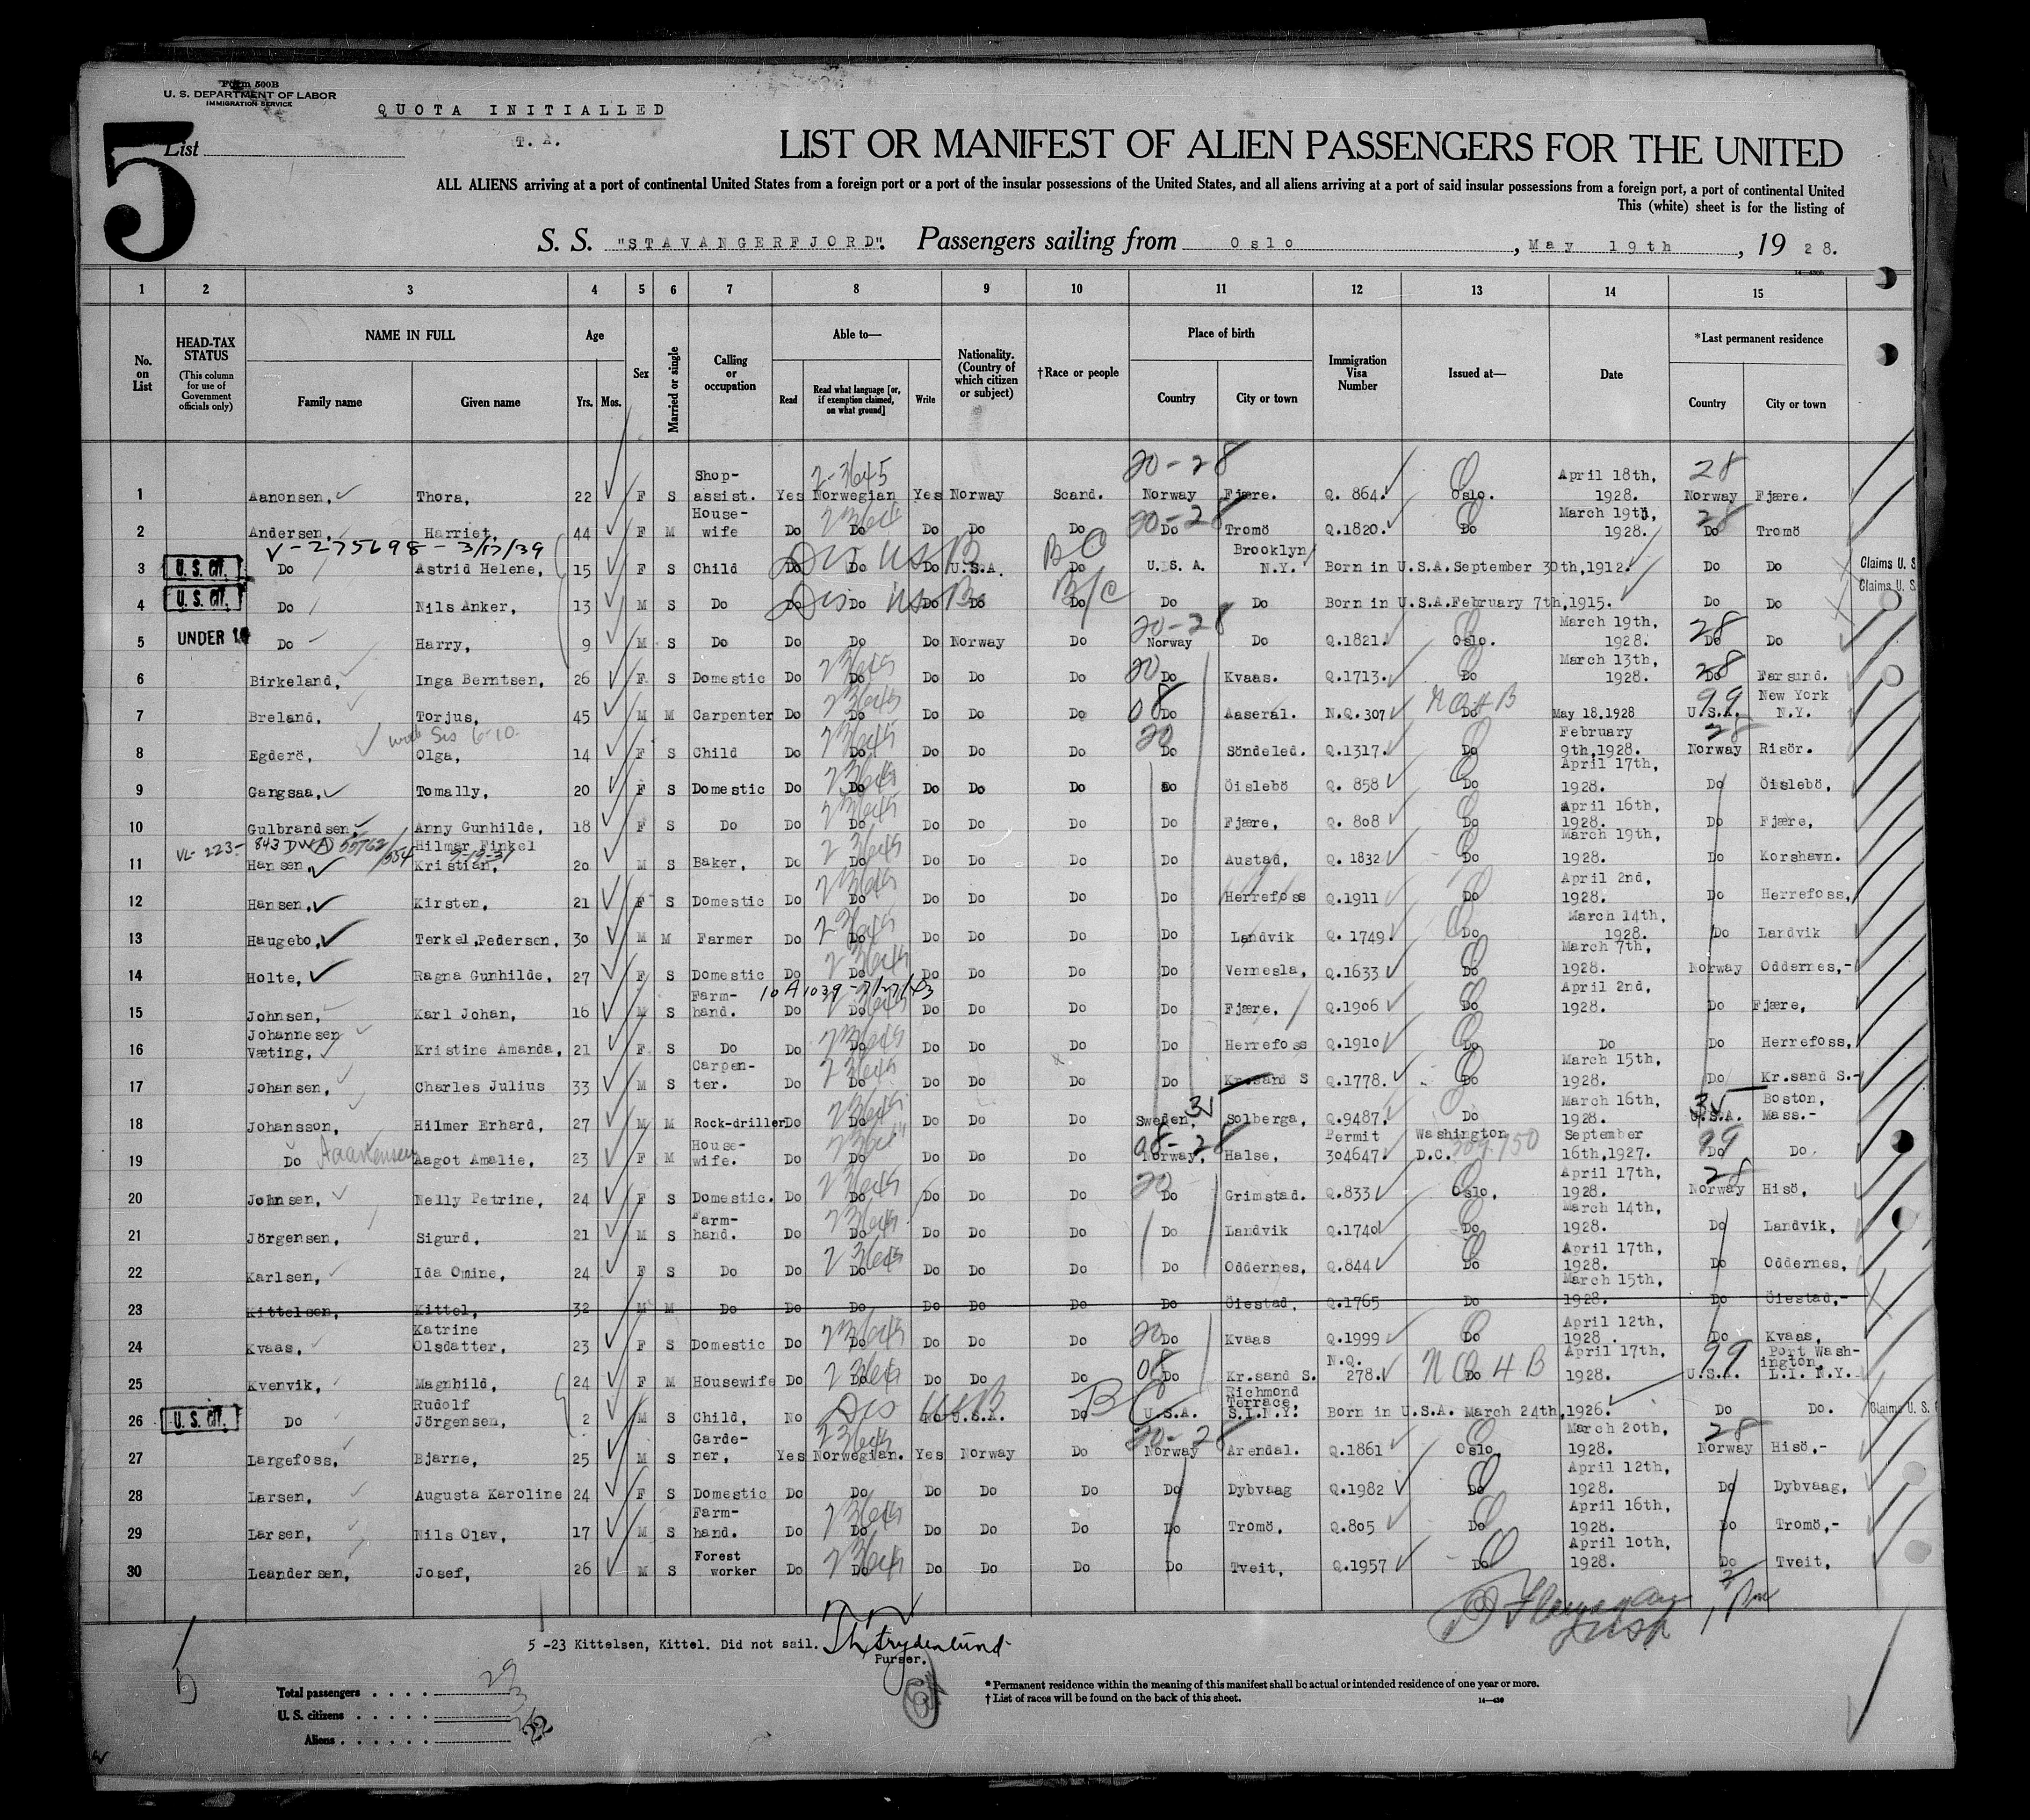 Form 500B
U. S. DEPARTMENT OF LABOR
IMMIGRATION SERVICE
QUOTA INITIALLED
T. A.
5
List
LIST OR MANIFEST OF ALIEN PASSENGERS FOR THE UNITED
ALL ALIENS arriving at a port of continental United States from a foreign port or a port of the insular possessions of the United States, and all aliens arriving at a port of said insular possessions from a foreign port, a port of continental United
This (white) sheet is for the listing of
S. S. "STAVANGERFJORD". Passengers sailing from Oslo, May 19th, 1928.
1 2 3 4 5 6 7 8 9 10 11 12 13 14 15
No. on List
HEAD-TAX STATUS (This column for use of Government officials only)
NAME IN FULL
Family name Given name
Age
Yrs. Mos.
Sex
Married or single
Calling or occupation
Able to—
Read Read what language [or, if exemption claimed, on what ground] Write
Nationality. (Country of which citizen or subject)
†Race or people
Place of birth
Country City or town
Immigration Visa Number
Issued at—
Date
*Last permanent residence
Country City or town
1 Aanonsen, Thora, 22 F S Shop-assist. Yes Norwegian Yes Norway Scand. Norway Fjære. Q. 864. Oslo. April 18th, 1928. Norway Fjære.
2 Andersen, Harriet, 44 F M House-wife Do Do Do Do Do Do Tromö Q.1820. Do March 19th, 1928. Do Tromö
V-275698 - 3/17/39
3 U. S. CIT. Do Astrid Helene, 15 F S Child Do Do Do U.S.A. Do U.S.A. Brooklyn N.Y. Born in U.S.A. September 30th,1912. Do Do Claims U. S
4 U. S. CIT. Do Nils Anker, 13 M S Do Do Do Do Do Do Do Do Born in U.S.A. February 7th,1915. Do Do Claims U. S
5 UNDER 16 Do Harry, 9 M S Do Do Do Do Norway Do Norway Do Q.1821. Oslo. March 19th, 1928. Do Do
6 Birkeland, Inga Berntsen, 26 F S Domestic Do Do Do Do Do Do Kvaas. Q.1713. Do March 13th, 1928. Do Farsund.
7 Breland, Torjus, 45 M M Carpenter Do Do Do Do Do Do Aaseral. N.Q.307 Do May 18.1928 U.S.A. New York N.Y.
8 Egderö, Olga, 14 F S Child Do Do Do Do Do Do Söndeled. Q.1317. Do February 9th,1928. Norway Risör.
9 Gangsaa, Tomally, 20 F S Domestic Do Do Do Do Do Do Öislebö Q. 858 Do April 17th, 1928. Do Öislebö,
10 Gulbrandsen, Anny Gunhilde, 18 F S Do Do Do Do Do Do Do Fjære, Q. 808 Do April 16th, 1928. Do Fjære,
11 Hansen, Hilmar Finkel Kristian, 20 M S Baker, Do Do Do Do Do Do Austad, Q. 1832 Do March 19th, 1928. Do Korshavn.
12 Hansen, Kirsten, 21 F S Domestic Do Do Do Do Do Do Herrefoss Q.1911 Do April 2nd, 1928. Do Herrefoss,
13 Haugebo, Terkel,Pedersen, 30 M M Farmer Do Do Do Do Do Do Landvik Q. 1749. Do March 14th, 1928. Do Landvik
14 Holte, Ragna Gunhilde, 27 F S Domestic Do Do Do Do Do Do Vernesla, Q.1633 Do March 7th, 1928. Norway Oddernes,-
15 Johnsen, Karl Johan, 16 M S Farm-hand. Do Do Do Do Do Do Fjære, Q.1906 Do April 2nd, 1928. Do Fjære,
16 Johannesen Væting, Kristine Amanda, 21 F S Do Do Do Do Do Do Do Herrefoss Q.1910 Do Do Do Herrefoss,
17 Johansen, Charles Julius 33 M S Carpen-ter. Do Do Do Do Do Do Kr.sand S Q.1778. Do March 15th, 1928. Do Kr.sand S.-
18 Johansson, Hilmer Erhard, 27 M M Rock-driller Do Do Do Do Do Sweden, Solberga, Q.9487. Do March 16th, 1928. U.S.A. Boston, Mass.-
19 Do Aagot Amalie, 23 F M House-wife. Do Do Do Do Do Norway, Halse, Permit 304647. Washington D.C. September 16th,1927. Do Do
20 Johnsen, Nelly Petrine, 24 F S Domestic. Do Do Do Do Do Do Grimstad. Q.833 Oslo, April 17th, 1928. Norway Hisö,
21 Jörgensen, Sigurd, 21 M S Farm-hand. Do Do Do Do Do Do Landvik Q.1740 Do March 14th, 1928. Do Landvik,
22 Karlsen, Ida Omine, 24 F S Do Do Do Do Do Do Do Oddernes, Q.844 Do April 17th, 1928. Do Oddernes,
23 Kittelsen, Kittel, 32 M M Do Do Do Do Do Do Do Öiestad, Q.1765 Do March 15th, 1928. Do Öiestad,-
24 Kvaas, Katrine Olsdatter, 23 F S Domestic Do Do Do Do Do Do Kvaas Q.1999 Do April 12th, 1928. Do Kvaas,
25 Kvenvik, Magnhild, 24 F M Housewife Do Do Do Do Do Do Kr.sand S. N.Q. 278. Do April 17th, 1928. U.S.A. Port Wash-ington, L.I. N.Y.
26 U. S. CIT. Do Rudolf Jörgensen, 2 M S Child, No No U.S.A. Do U.S.A. Richmond Terrace, S.I.N.Y. Born in U.S.A. March 24th,1926. Do Do. Claims U. S.
27 Largefoss, Bjarne, 25 M S Garde-ner, Yes Norwegian. Yes Norway Do Norway Arendal. Q.1861 Oslo, March 20th, 1928. Norway Hisö,-
28 Larsen, Augusta Karoline 24 F S Domestic Do Do Do Do Do Do Dybvaag Q.1982 Do April 12th, 1928. Do Dybvaag,
29 Larsen, Nils Olav, 17 M S Farm-hand. Do Do Do Do Do Do Tromö, Q.805 Do April 16th, 1928. Do Tromö,-
30 Leandersen, Josef, 26 M S Forest worker Do Do Do Do Do Do Tveit, Q.1957 Do April 10th, 1928. Do Tveit,
5 -23 Kittelsen, Kittel. Did not sail.
Purser.
Total passengers . . . . 29
U. S. citizens . . . . . 3
Aliens . . . . . .
*Permanent residence within the meaning of this manifest shall be actual or intended residence of one year or more.
†List of races will be found on the back of this sheet.
14—430